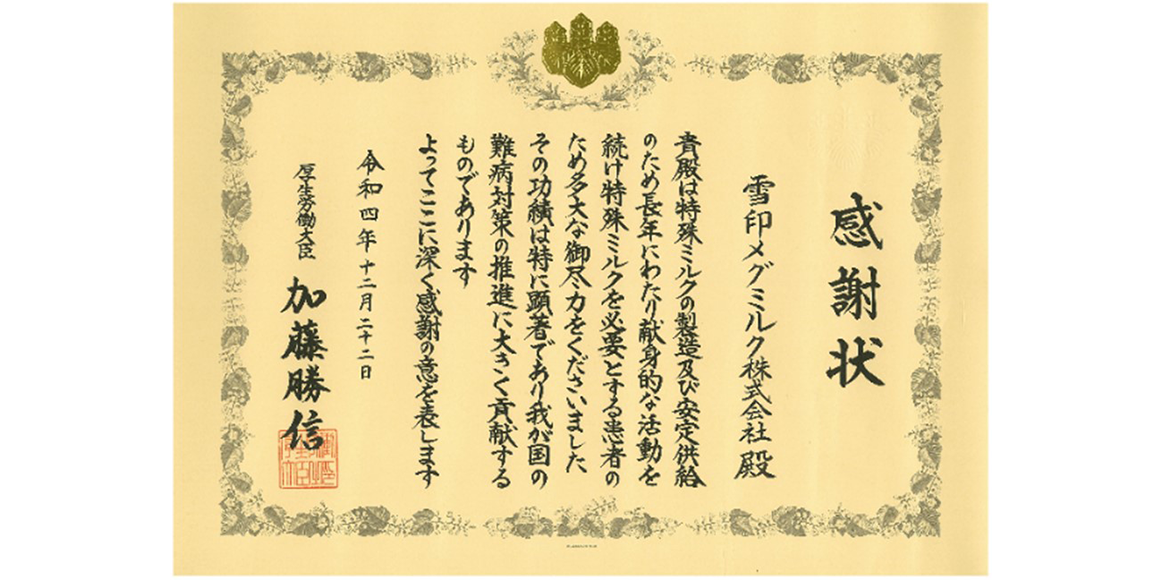 感謝状
雪印メグミルク株式会社 殿
貴殿は特殊ミルクの製造及び安定供給
のため長年にわたり献身的な活動を
続け特殊ミルクを必要とする患者の
ため多大な御尽力をくださいました
その功績は特に顕著であり我が国の
難病対策の推進に大きく貢献する
ものであります
よってここに深く感謝の意を表します
令和四年十二月二十二日
厚生労働大臣 加藤勝信